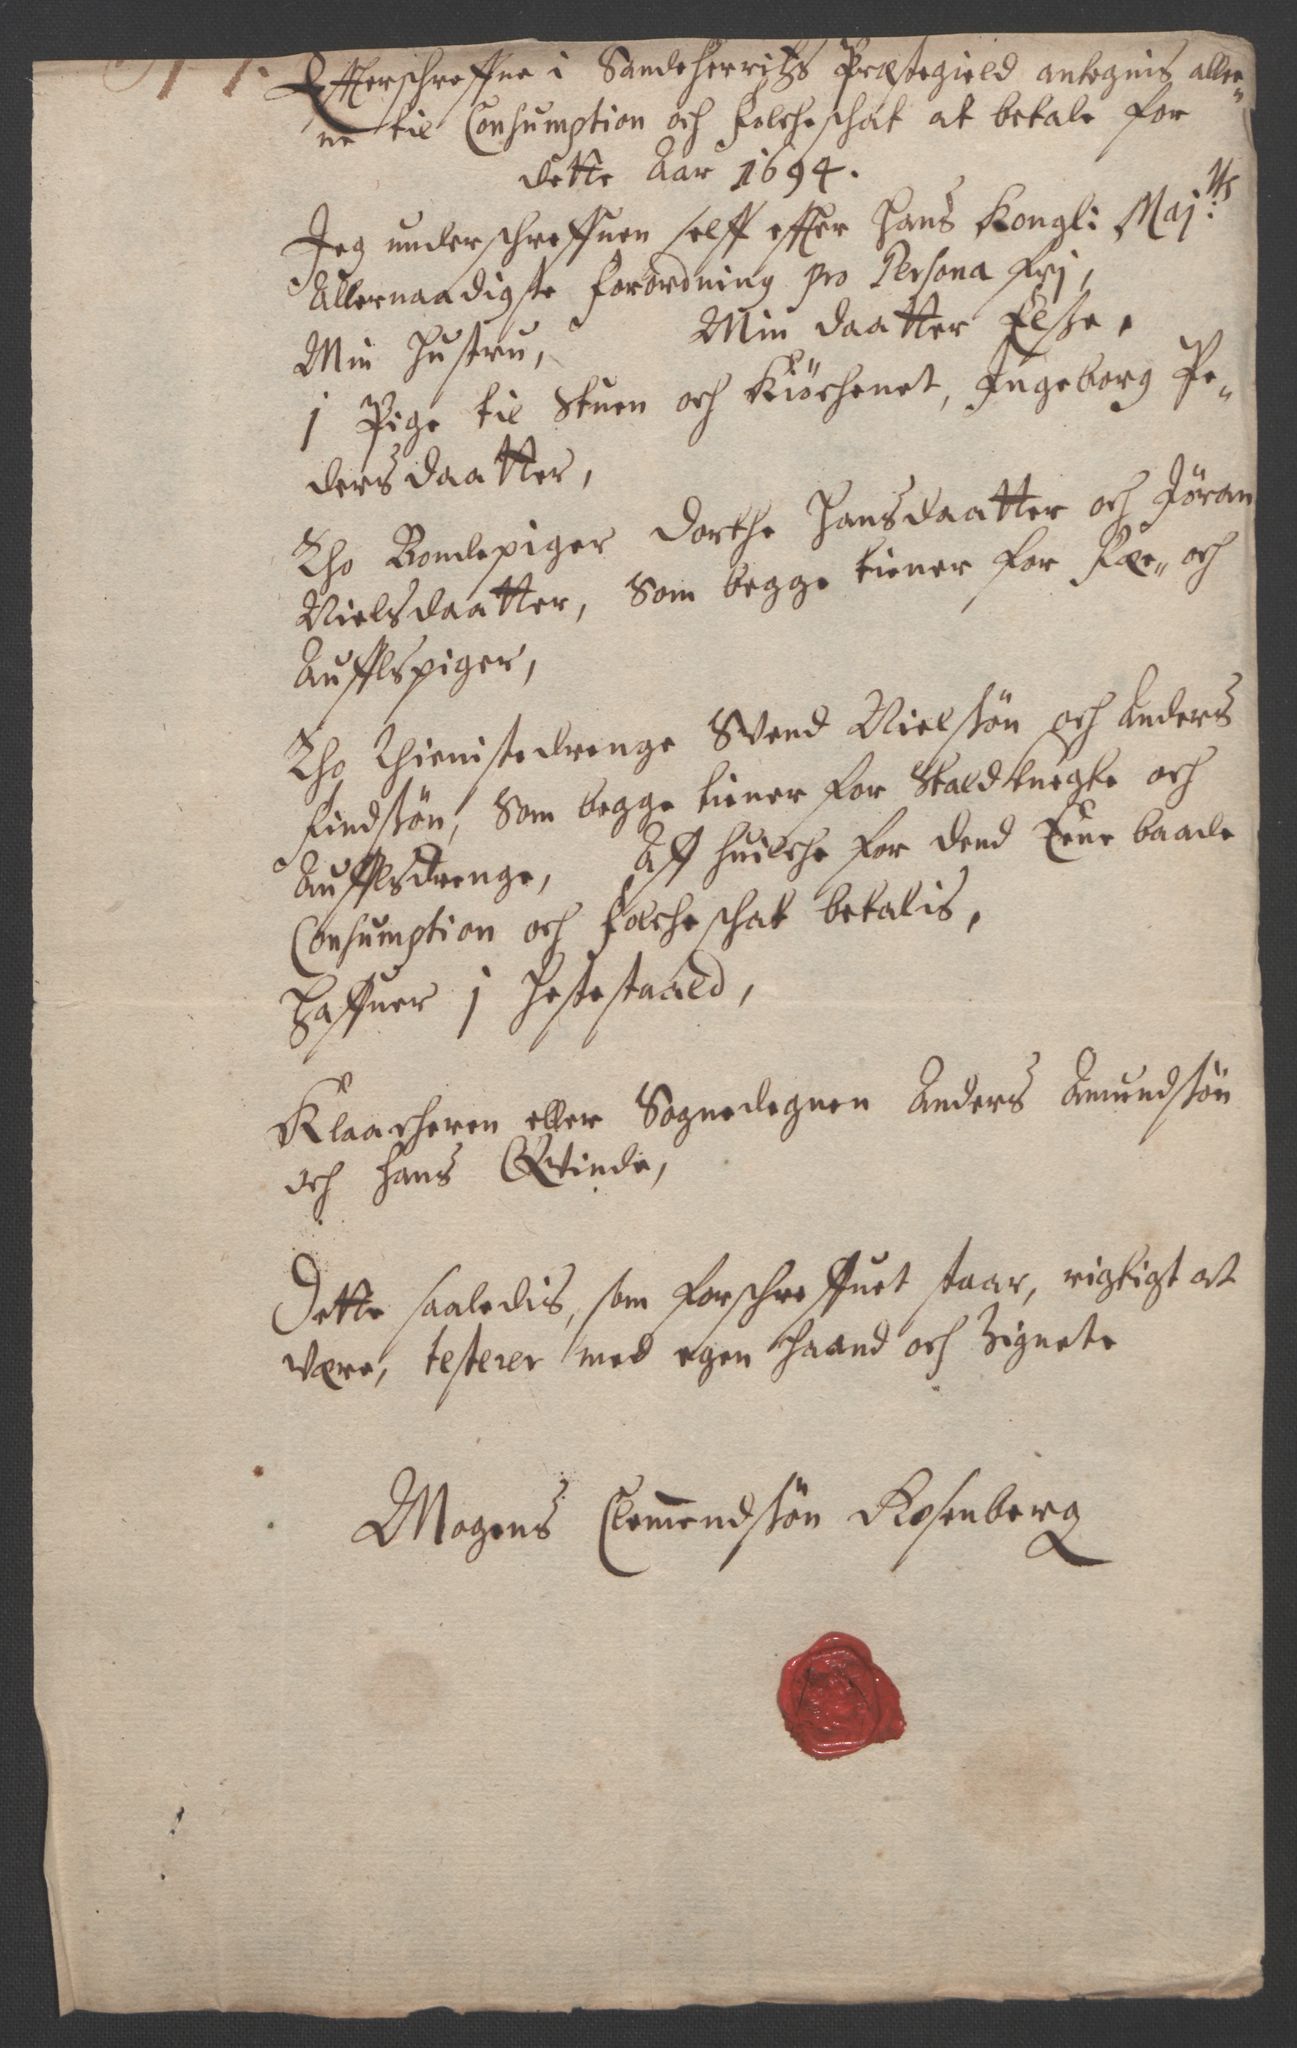 Effterschreffne i Sandeherritzs Præstegield antegnis alle-
ne til Consumption och Folcheschat at betale for
dette Aar 1694.
Jeg underschreffuen self effter Hans Kongl: Maj:ts
Allernaadigste Forordning pro Persona frj,
Min Hustru, Min daatter Else,
1 Pige til Stuen och Kiöchenet, Ingeborg Pe-
dersdaatter,
Tho Bondepiger Dorthe Hansdaatter och Jöran
Nielsdaatter, Som begge tiener for Fæe- och
Aufflspiger,
Tho Thienistedrenge Svend Nielssön och Anders
Findssön, Som begge tiener for Staldknegte och
Aufflsdrenge, Aff huilche for dend Eene baade
Consumption och Folcheschat betalis,
Haffuer 1 Hestestaald,
Klaacheren eller Sognedegnen Anders Amundssön
och Hans Qvinde,
Dette saaledis, som forschreffuet staar, rigtigt at
være, testerer med egen Haand och Zignete
Mogens Clemendssön Rosenberg